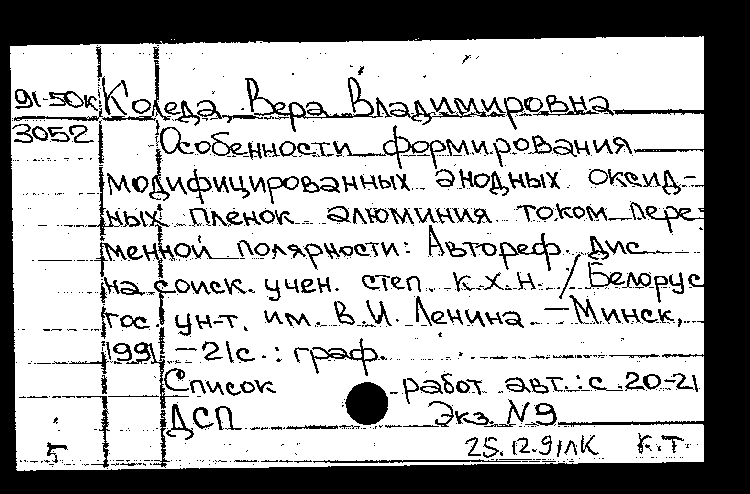 91-50к Коледа, Вера Владимировна
3052 Особенности формирования
модифицированных анодных оксид-
ных пленок алюминия током пере-
менной полярности: Автореф. дис
на соиск. учен. степ. к.х.н. / Белорус
гос. ун-т. им. В.И. Ленина. — Минск,
1991 — 21с.: граф.
Список работ авт.: с. 20-21
ДСП Экз. N9
5 25.12.91ЛК К.Т.